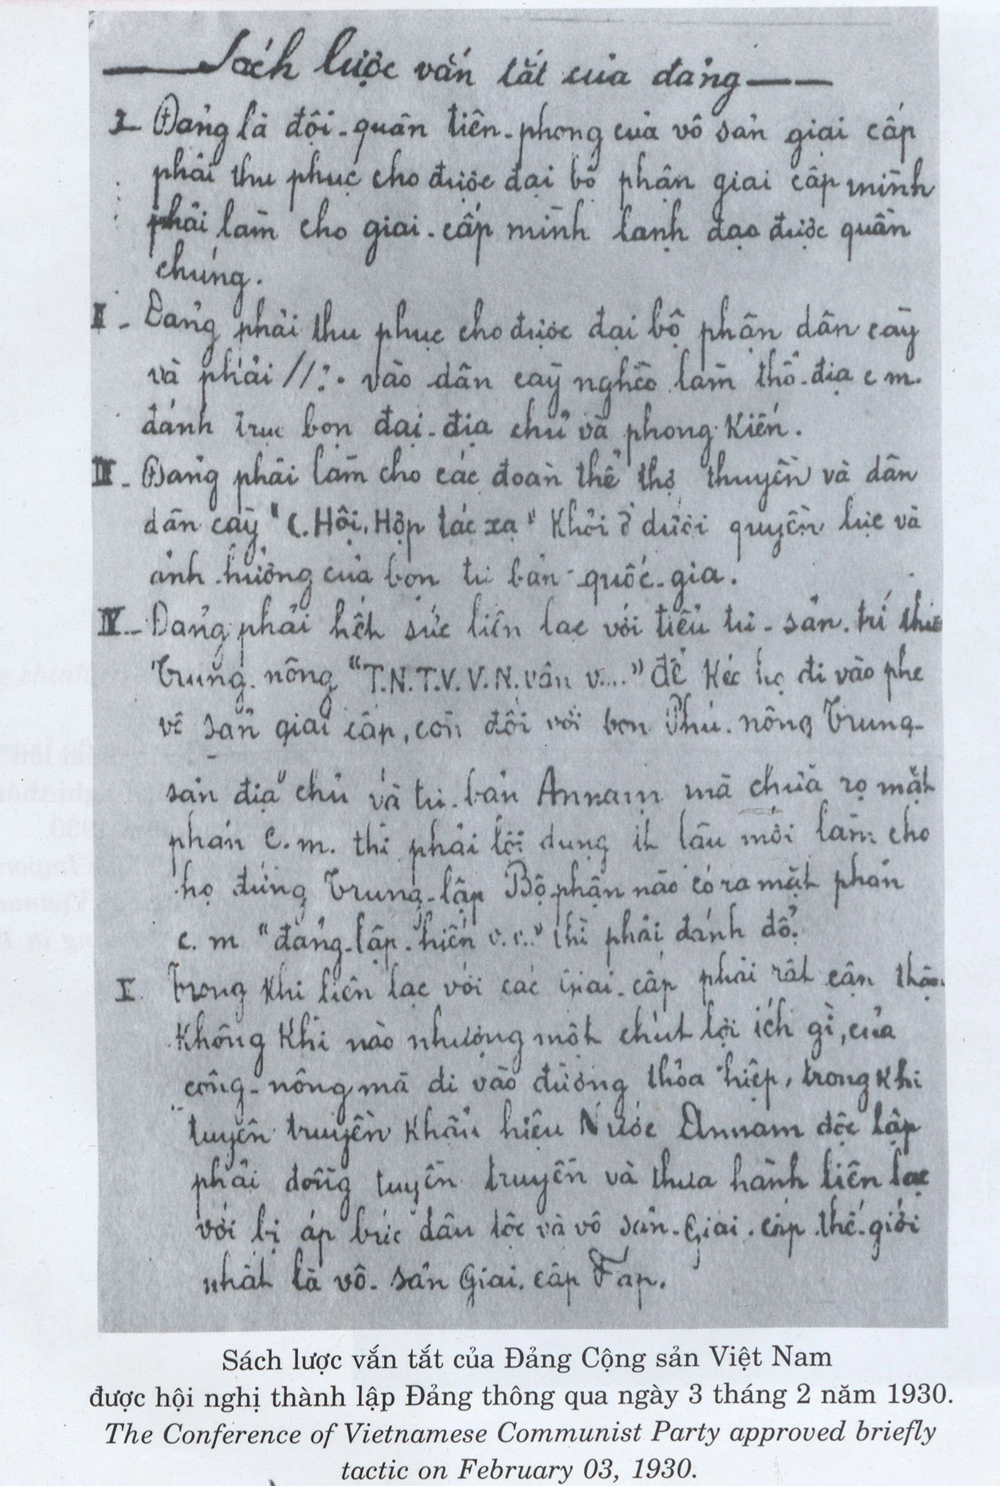 Sách lược vắn tắt của đảng
I- Đảng là đội-quân tiên-phong của vô sản giai cấp
phải thu phục cho được đại bộ phận giai cấp mình
phải làm cho giai-cấp mình lãnh đạo được quần
chúng.
II- Đảng phải thu phục cho được đại bộ phận dân cày
và phải //:. vào dân cày nghèo làm thổ-địa c m.
đánh trục bọn đại-địa chủ và phong Kiến.
III- Đảng phải làm cho các đoàn thể thợ thuyền và dân
dân cày "C.Hội, Hợp tác xã" Khỏi ở dưới quyền lực và
ảnh hưởng của bọn tư bản-quốc-gia.
IV- Đảng phải hết sức liên lạc với tiểu tư-sản, trí thức
Trung nông "T.N.T.V.V.N.vân v...." để Kéo họ đi vào phe
vô sản giai cấp, còn đối với bọn Phú nông Trung-
sản địa chủ và tư-bản Annam mà chưa rõ mặt
phản C.m. thì phải lợi dụng ít lâu mới làm cho
họ đứng Trung-lập Bộ phận nào có ra mặt phản
c. m "đảng-lập-hiến v.v.." thì phải đánh đổ.
V Trong Khi liên lạc với các giai-cấp phải rất cẩn thận.
Không Khi nào nhượng một chút lợi ích gì, của
công-nông mà đi vào đường thỏa hiệp, trong Khi
tuyên truyền Khẩu hiệu Nước Annam độc lập
phải đồng tuyên truyền và thưa hành liên lạc
với bị áp bức dân tộc và vô sản-Giai-cấp thế-giới
nhất là vô-sản Giai-cấp Fap.
Sách lược vắn tắt của Đảng Cộng sản Việt Nam
được hội nghị thành lập Đảng thông qua ngày 3 tháng 2 năm 1930.
The Conference of Vietnamese Communist Party approved briefly
tactic on February 03, 1930.